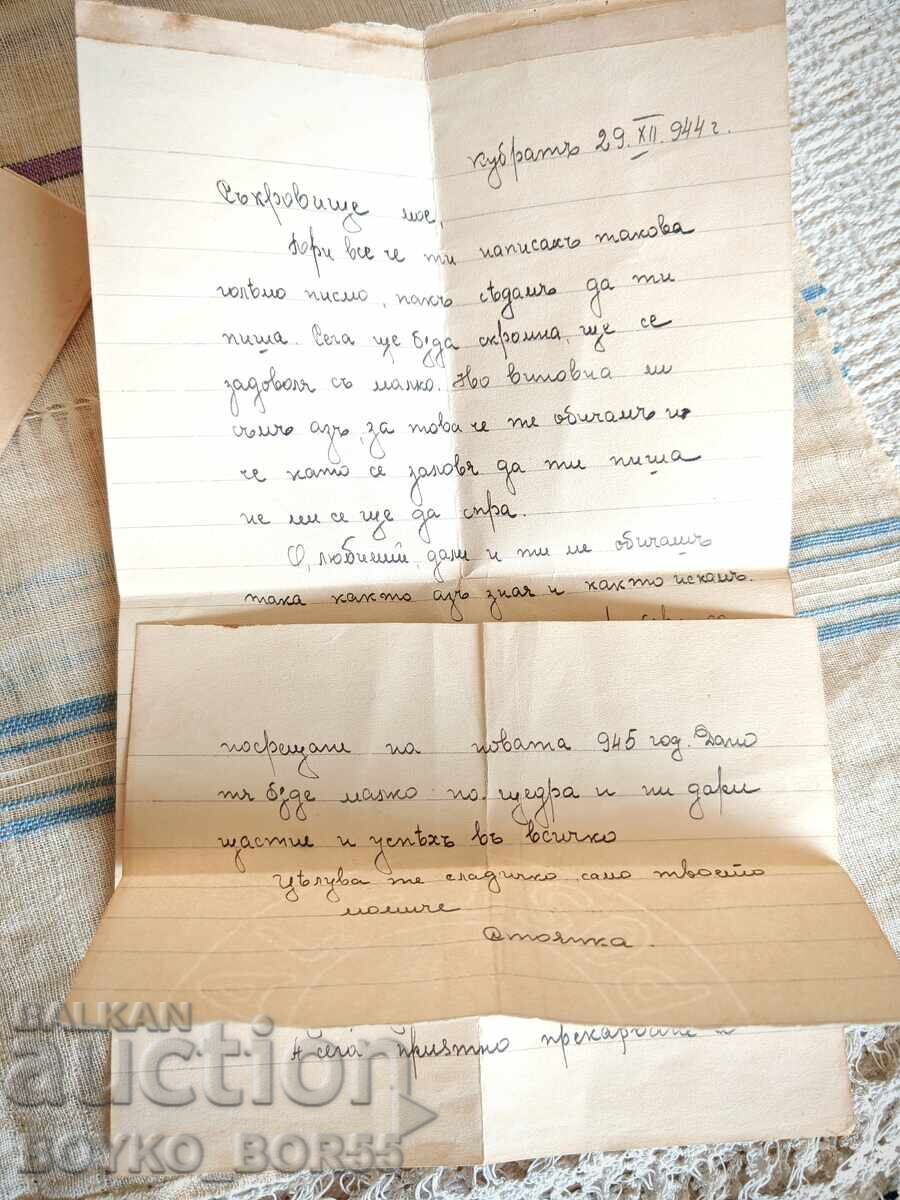 Кубратъ 29.XII.944 г.
Съкровище мое,
При все че ти написахъ такова
голѣмо писмо, пакъ сѣдамъ да ти
пиша. Сега ще бѫда скромна, ще се
задоволя съ малко. Но виновна ли
съмъ азъ, за това че те обичамъ и
че като се заловя да ти пиша
не ми се ще да спра.
О, любимий, дали и ти ме обичашъ
така както азъ зная и както искамъ.
посрещане на новата 945 год. Дано
тя бѫде малко по щедра и ни дари
щастие и успѣхъ въ всичко
Цѣлува те сладичко само твоето
момиче
Стоянка.
А сега приятно прекарване и
BALKAN
auction
BOYKO_BOR55